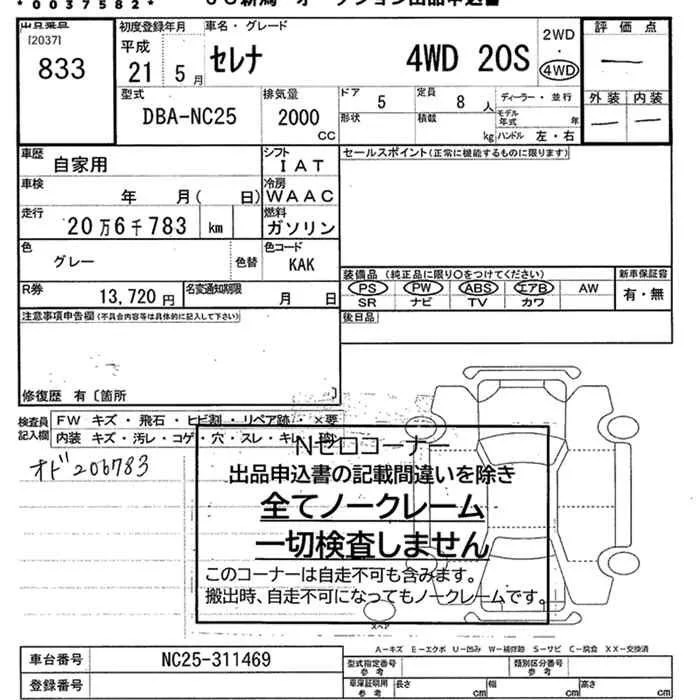 *0037582*
出品番号 初度登録年月 車名・グレード 2WD 評価点
[2037] 平成 セレナ 4WD 20S ・
833 21 5月 4WD —
型式 排気量 ドア 5 定員 8人 ディーラー・並行 外装 内装
DBA-NC25 2000 CC 形状 積載 kg モデル年式 年 — —
ハンドル 左・右
車歴 自家用 シフト IAT セールスポイント(正常に機能するものに限ります)
車検 年 月( 日) 冷房 WAAC
走行 20万6千783 km 燃料 ガソリン
色 グレー 色替 色コード KAK
装備品 (純正品に限り○をつけてください) 新車保証書
PS PW ABS エアB AW 有・無
SR ナビ TV カワ
R券 13,720円 名変通知期限 月 日
注意事項申告欄(不具合内容等は具体的に記入して下さい) 後日品
修復歴 有〔箇所 〕
検査員記入欄 FW キズ・飛石・ヒビ割・リペア跡・×要
内装 キズ・汚レ・コゲ・穴・スレ・キレ
オド206783
Nゼロコーナー
出品申込書の記載間違いを除き
全てノークレーム
一切検査しません
このコーナーは自走不可も含みます。
搬出時、自走不可になってもノークレームです。
スペア
A-キズ E-エクボ U-凹み W-補修跡 S-サビ C-腐食 XX-交換済
車台番号 NC25-311469 型式指定番号 参考 類別区分番号 参考
登録番号 車庫証明用 参考 長さ cm 幅 cm 高さ cm